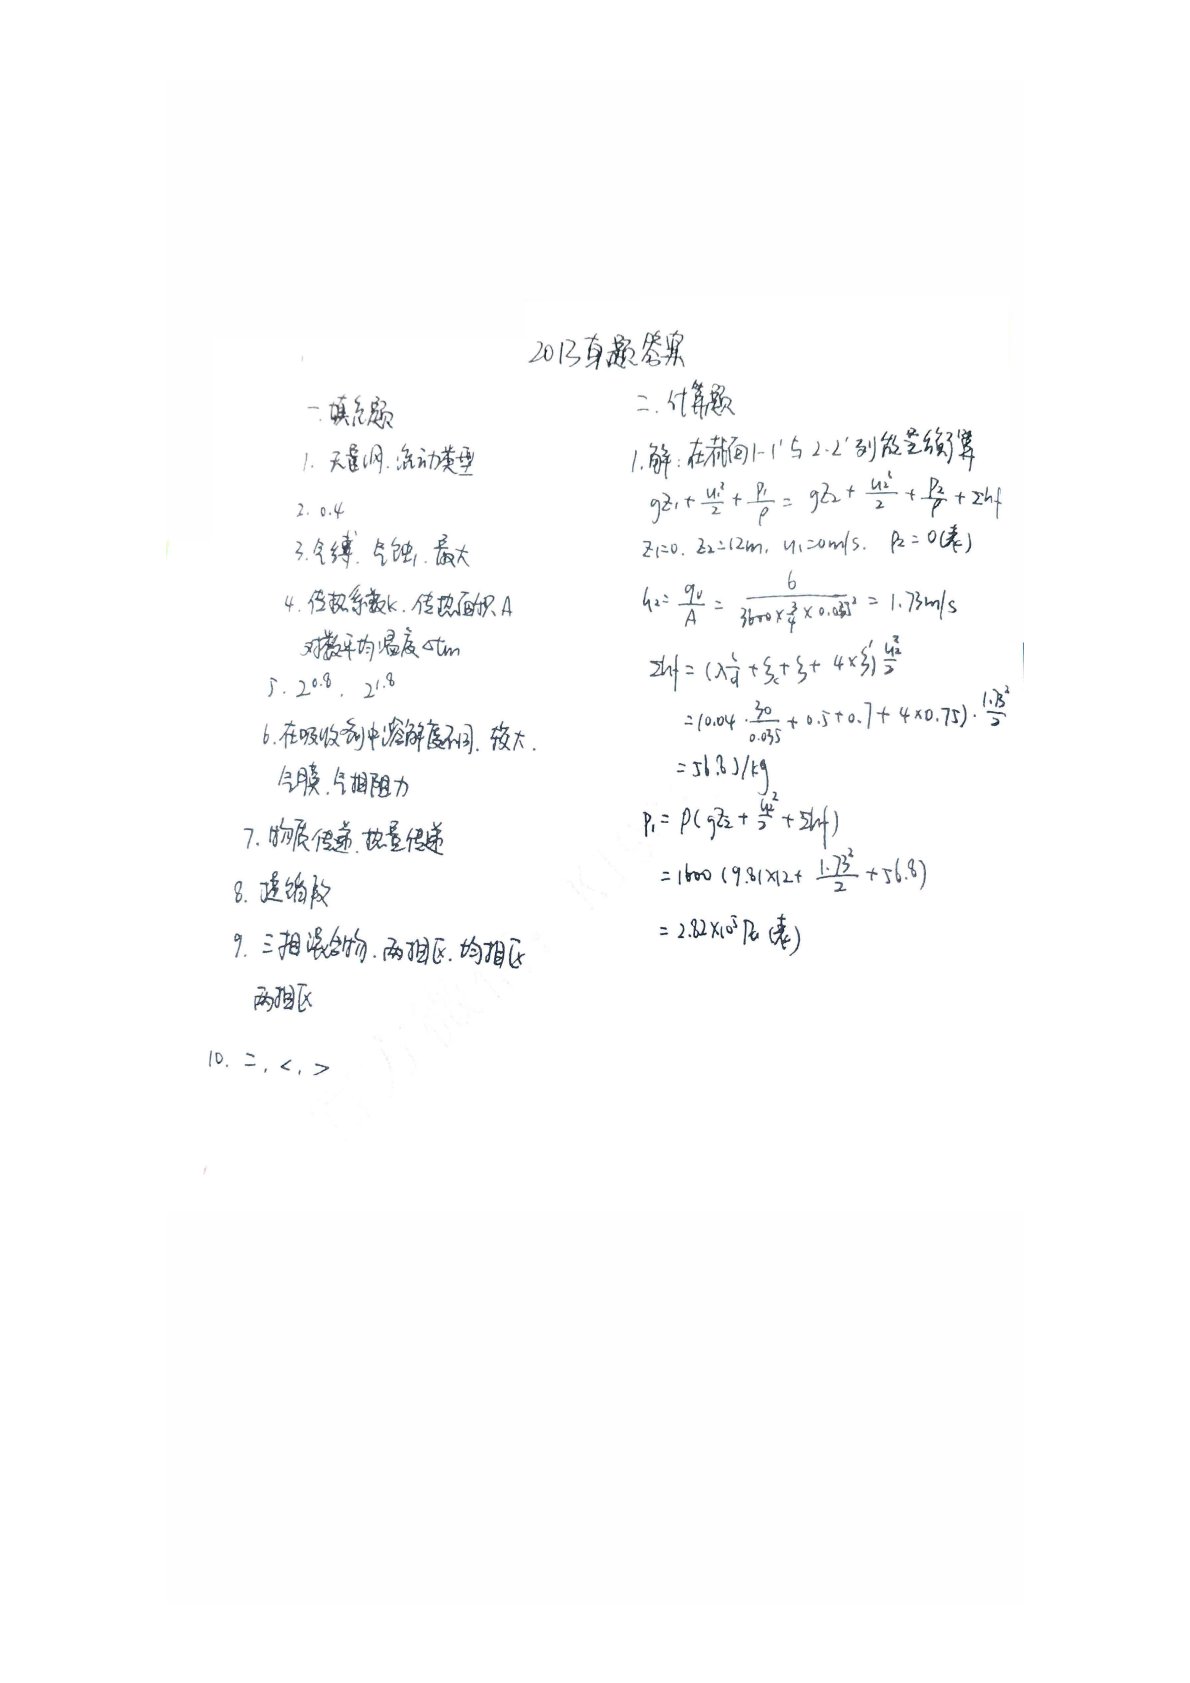 2013真题答案
一.填空题
1. 无量纲.流动类型
2. 0.4
3.气缚.气蚀,最大
4.传热系数K.传热面积A
对数平均温度Δtm
5. 2^0.8. 2^1.8
6.在吸收剂中溶解度不同.较大.
气膜.气相阻力
7.物质传递.热量传递
8.提馏段
9.三相混合物.两相区.均相区
两相区
10. =,<,>
二.计算题
1.解:在截面1-1'与2-2'列能量衡算
gz₁+u₁²/2+P₁/ρ=gz₂+u₂²/2+P₂/ρ+Σhf
z₁=0. z₂=12m. u₁=0m/s. P₂=0(表)
u₂=qv/A=6/(3600×3/4×0.035²)=1.73m/s
Σhf=(λl/d+ξc+ξ+4×ξ')u₂²/2
=(0.04·30/0.035+0.5+0.7+4×0.75)·1.73²/2
=56.8J/kg
P₁=ρ(gz₂+u₂²/2+Σhf)
=1600(9.81×12+1.73²/2+56.8)
=2.82×10⁵Pa(表)